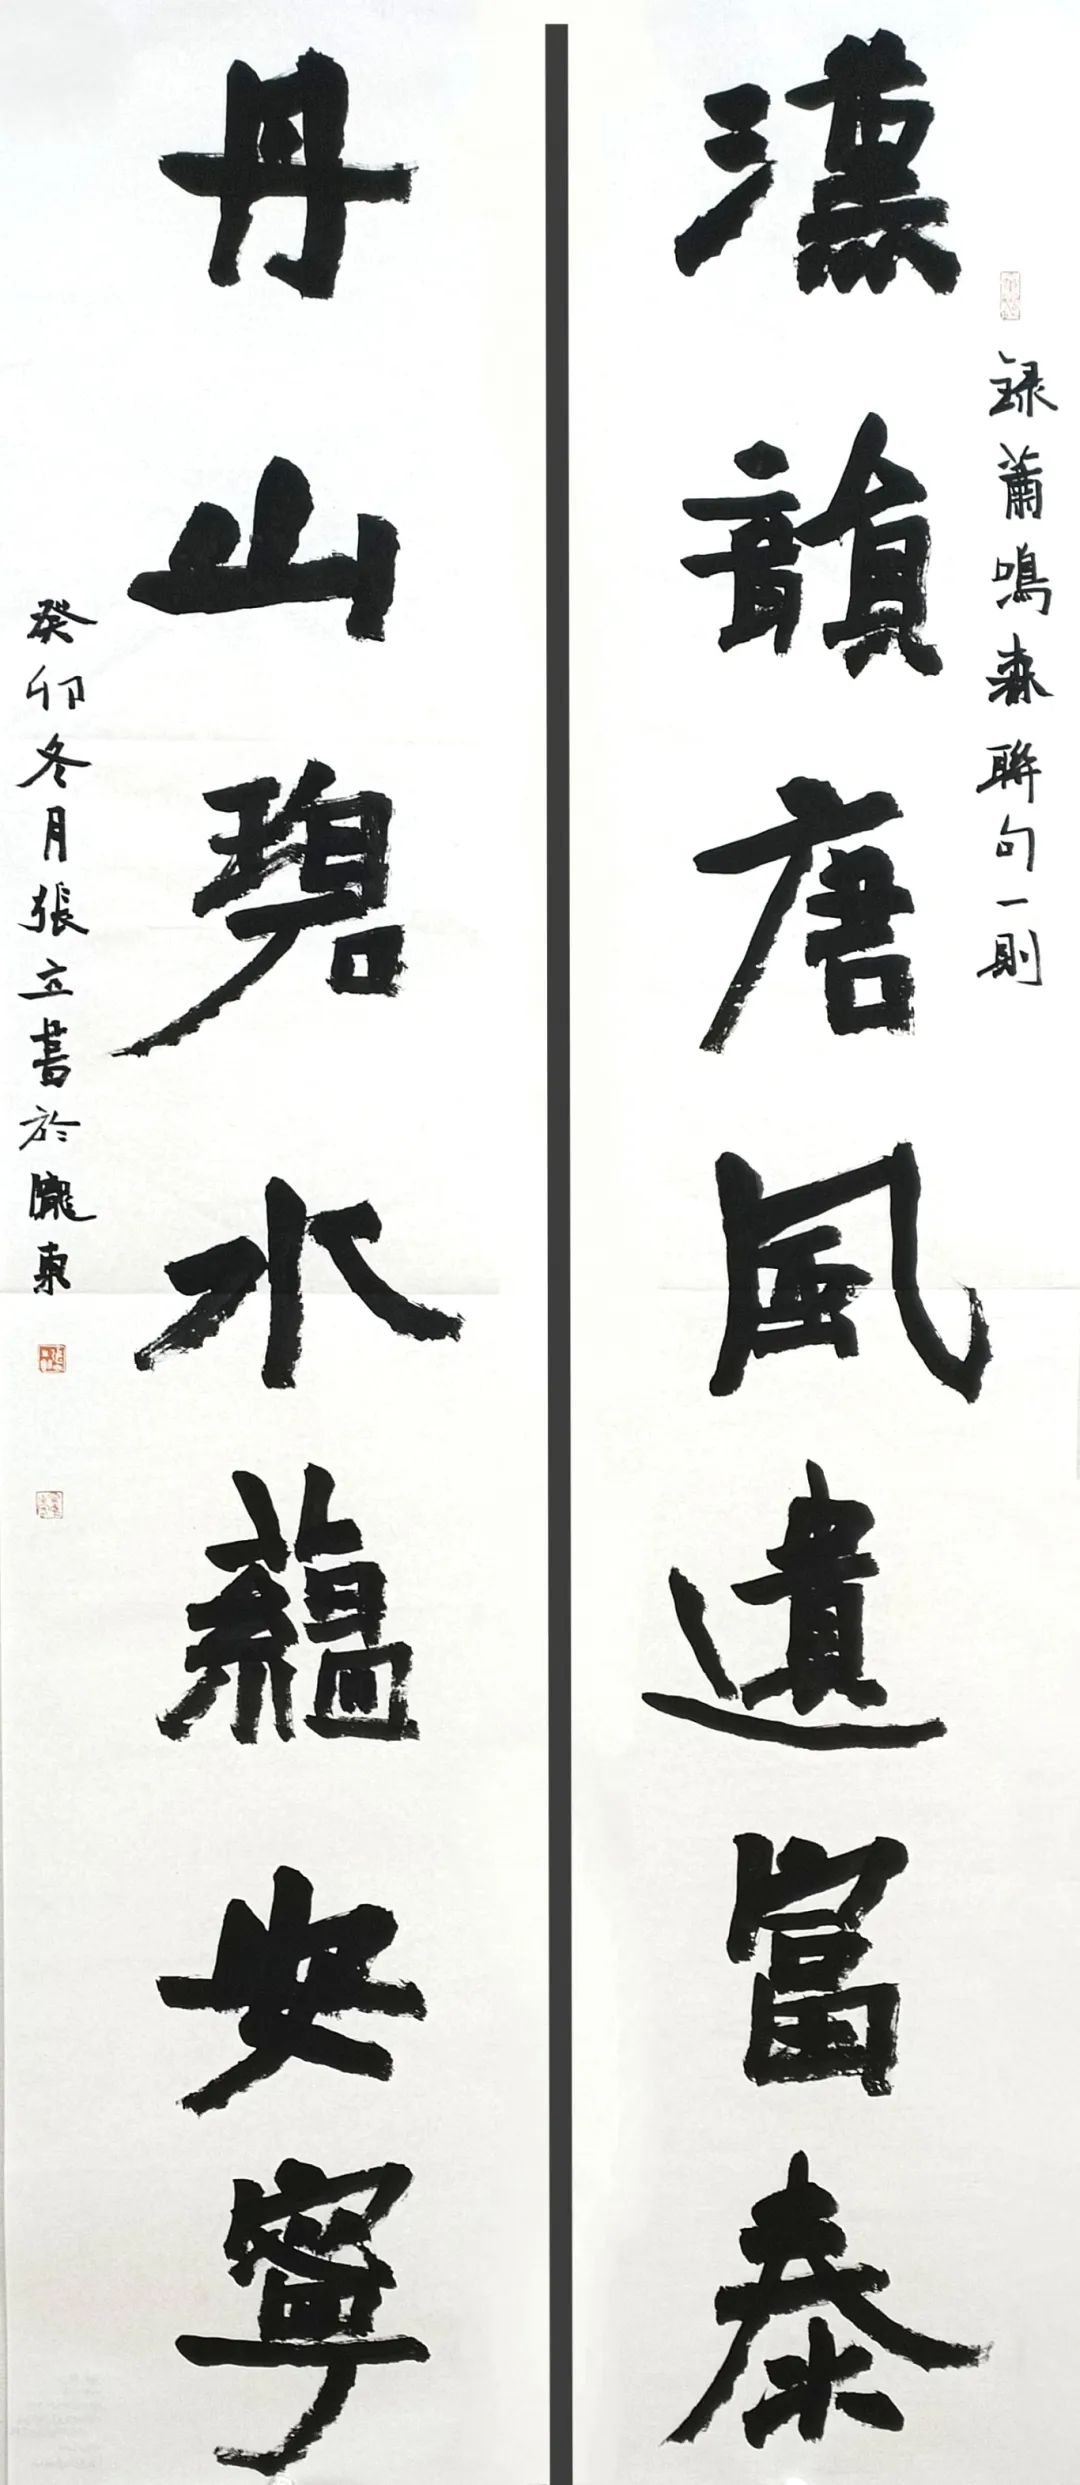 錄蕭鳴森聯句一則
漢韻唐風遺富泰
丹山碧水蘊安寧
癸卯冬月張立書於隴東